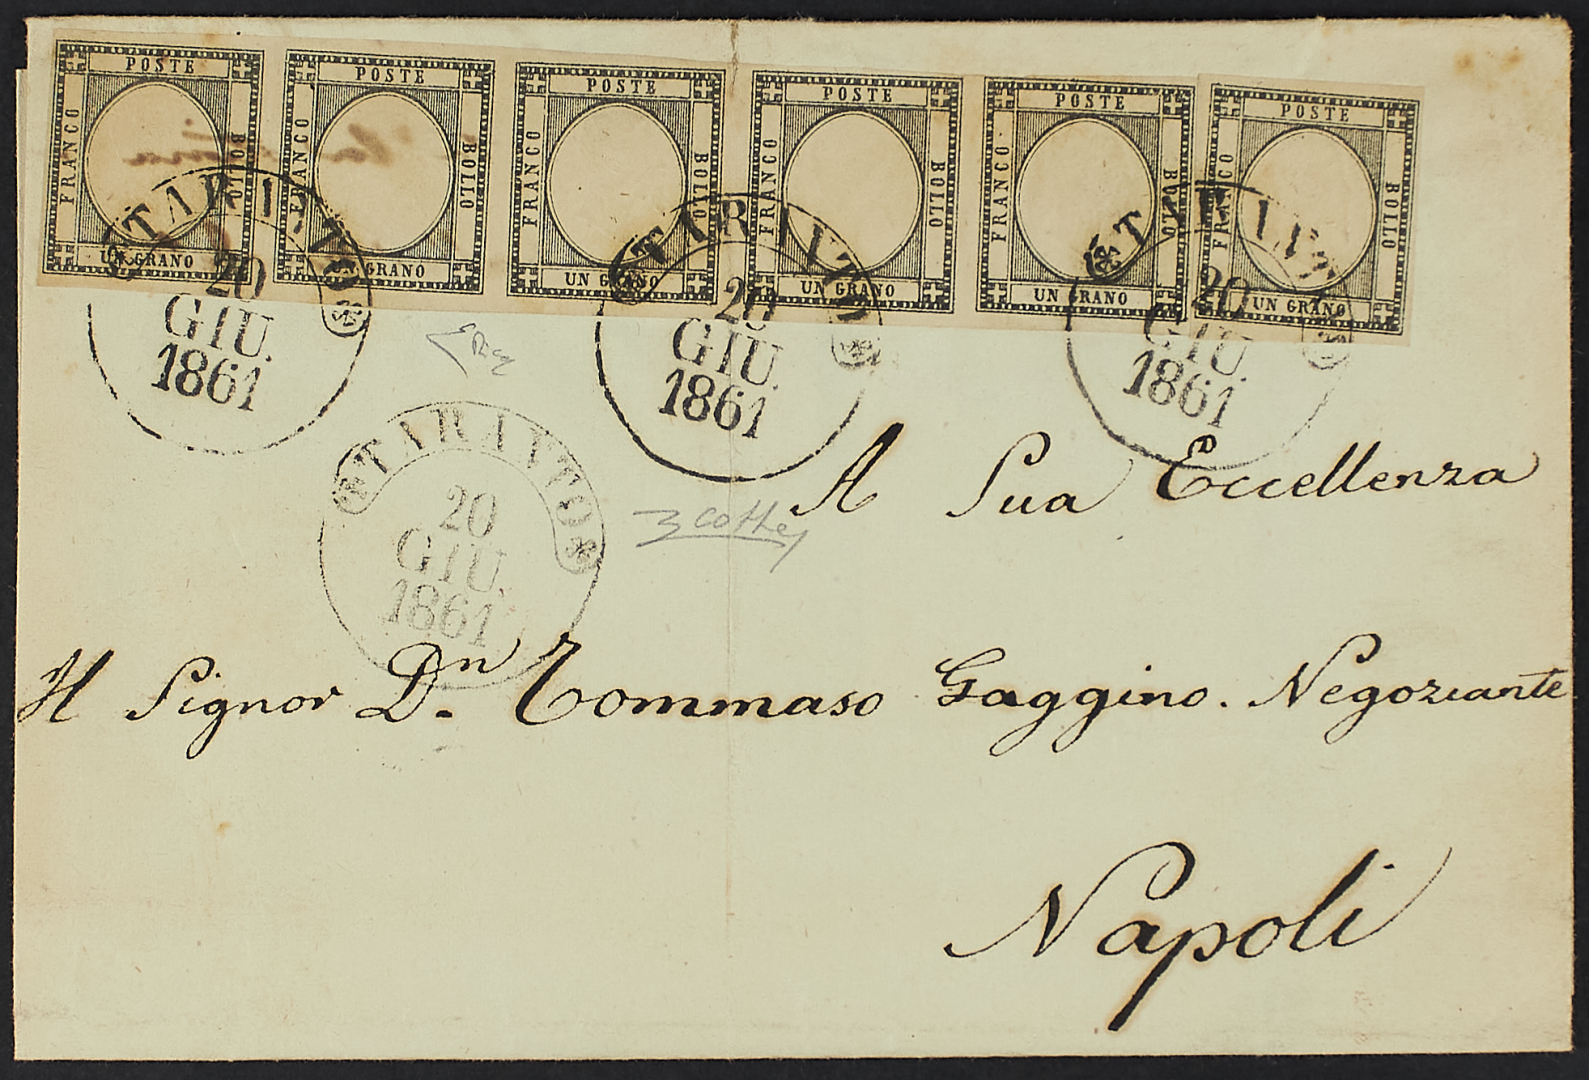 POSTE POSTE POSTE POSTE POSTE POSTE
FRANCO BOLLO FRANCO BOLLO FRANCO BOLLO FRANCO BOLLO FRANCO BOLLO FRANCO BOLLO
UN GRANO UN GRANO UN GRANO UN GRANO UN GRANO UN GRANO
TARANTO
20
GIU.
1861
TARANTO
20
GIU.
1861
TARANTO
20
GIU.
1861
TARANTO
20
GIU.
1861
A Sua Eccellenza
Il Signor Dn. Tommaso Gaggino. Negoziante
Napoli